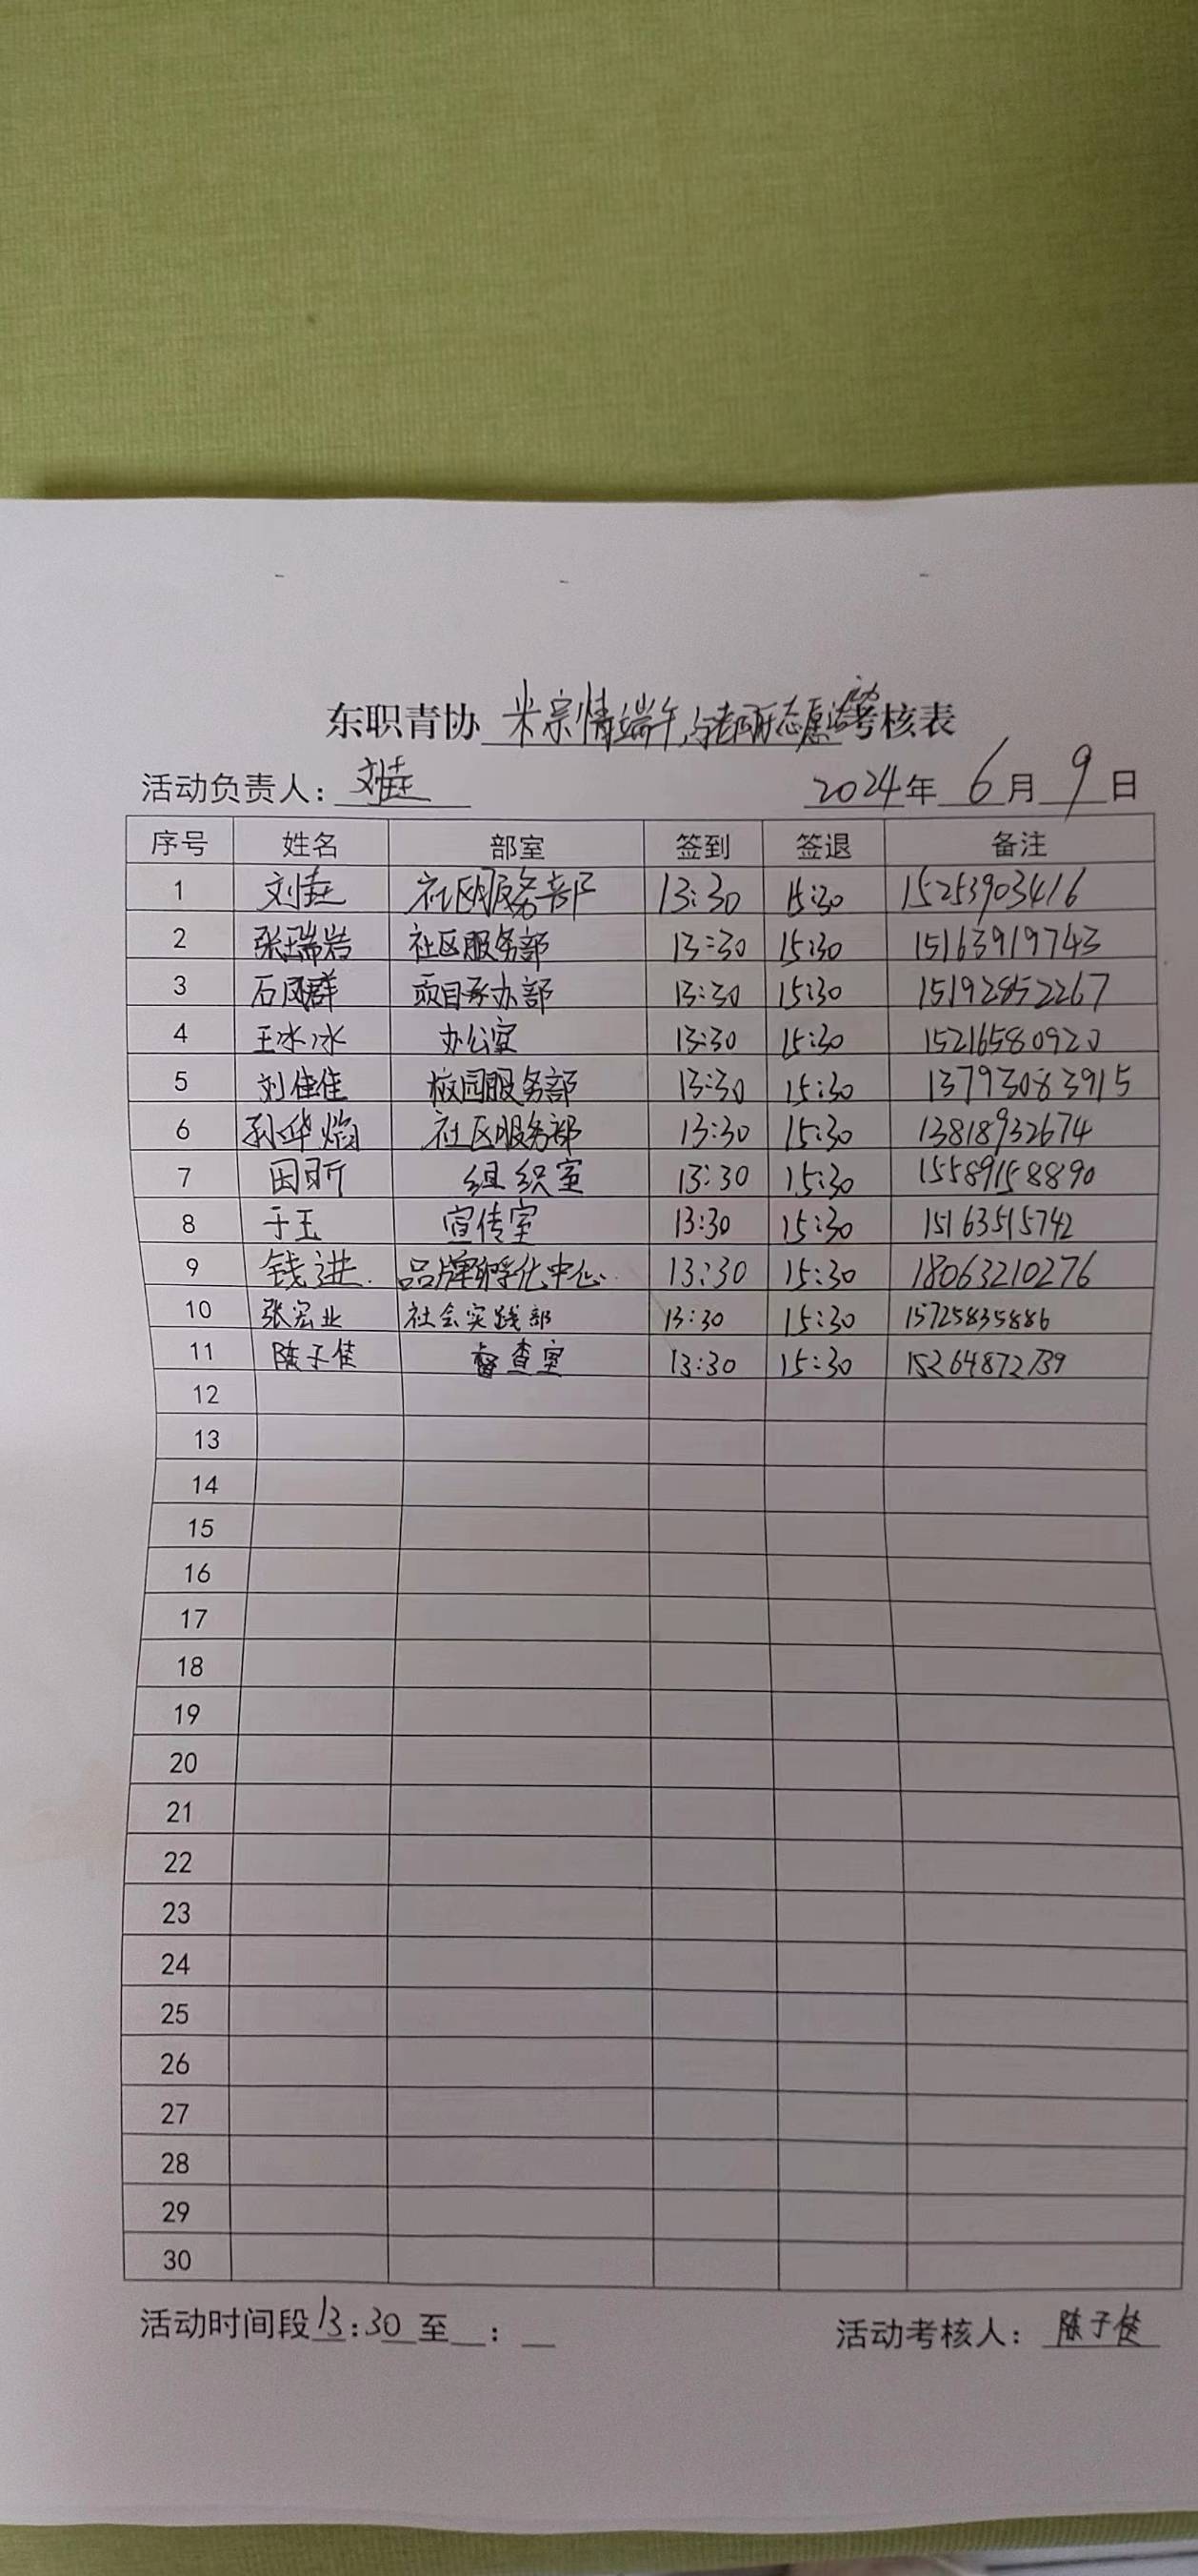 东职青协 米宗情端午,与老同行志愿活动考核表
活动负责人: 刘珪 2024年 6月 9日
序号 姓名 部室 签到 签退 备注
1 社区服务部 13:30 15:30 15253903416
2 张瑞岩 社区服务部 13:30 15:30 15163919743
3 石凤群 项目承办部 13:30 15:30 15192852267
4 王冰冰 办公室 13:30 15:30 15216580920
5 刘佳佳 校园服务部 13:30 15:30 13793083915
6 孙华焰 社区服务部 13:30 15:30 13818932674
7 组织室 13:30 15:30 15589158890
8 于玉 宣传室 13:30 15:30 15163515742
9 钱进 品牌孵化中心 13:30 15:30 18063210276
10 张宏业 社会实践部 13:30 15:30 15725835886
11 陈子佳 督查室 13:30 15:30 15264872739
12
13
14
15
16
17
18
19
20
21
22
23
24
25
26
27
28
29
30
活动时间段13:30至__:__ 活动考核人: 陈子佳